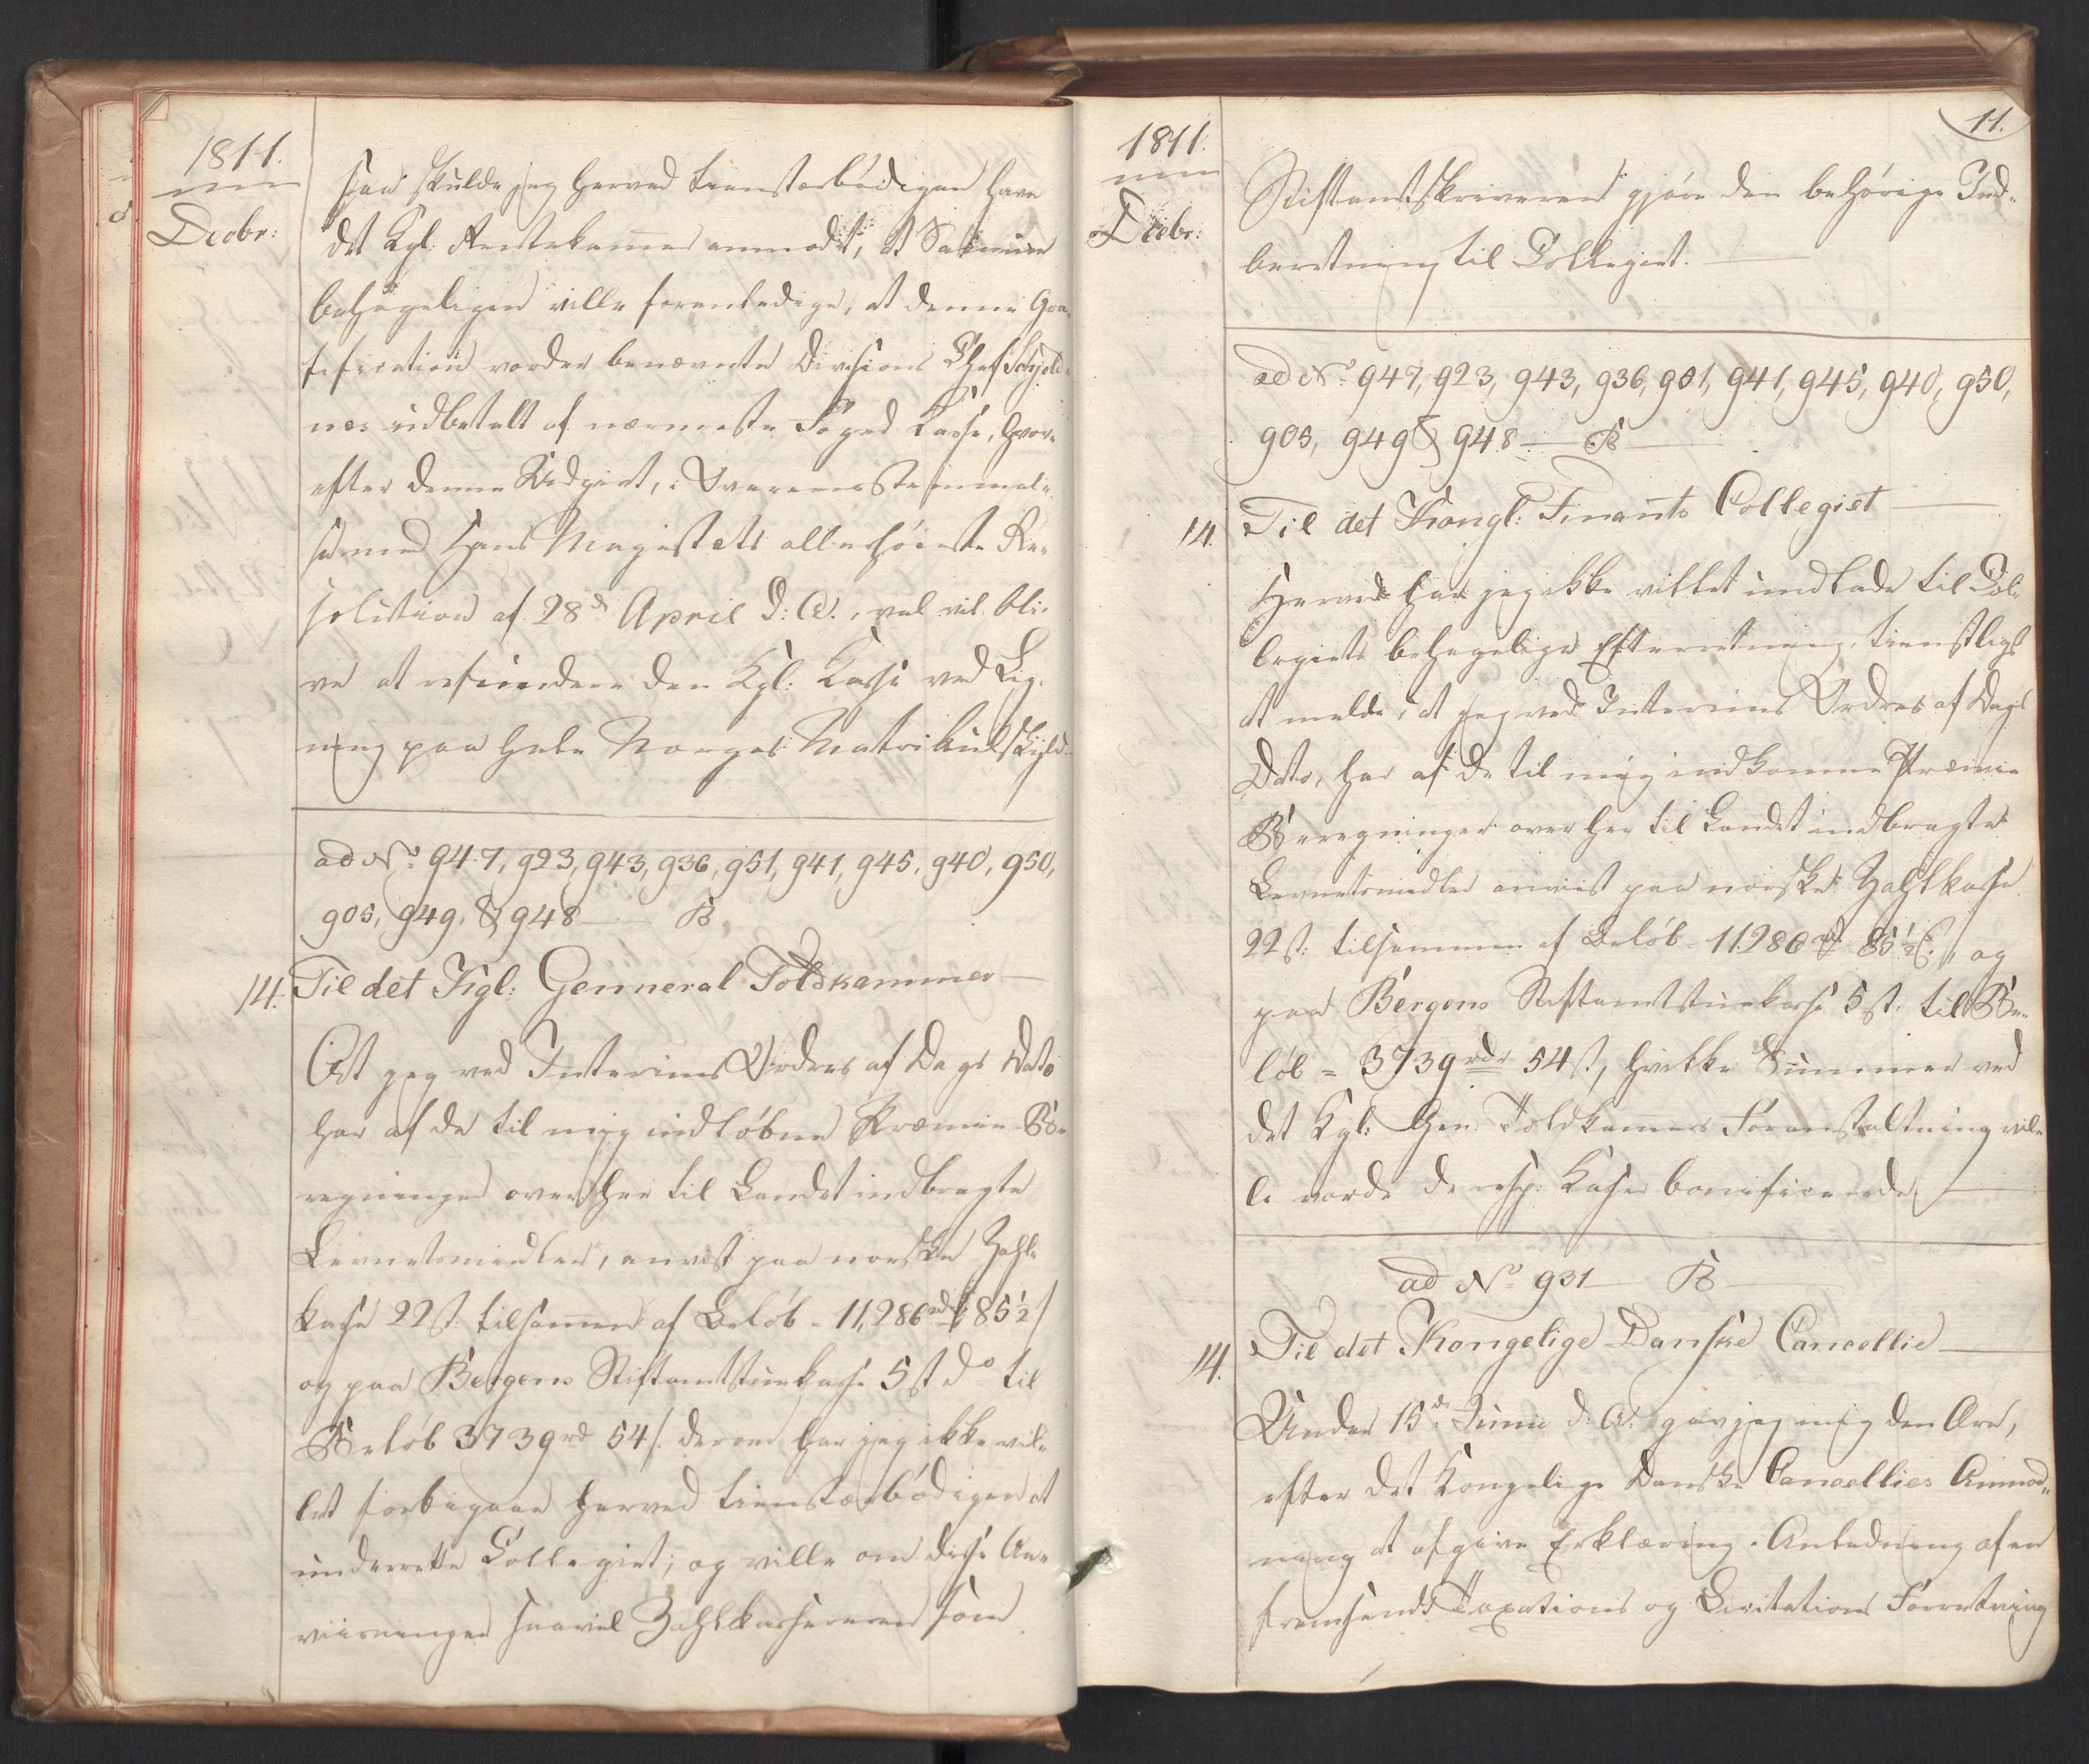 1811.
Decbr:
saa skulde jeg herved tienstærbødigen have
det Kgl: Rentekammer anmodet, at Samme
behageligen ville foranledige, at denne Gra-
tification vorder benævnte Divisions Chef
nes udbetalt af nærmeste Foged Casse, hvor-
efter denne Udgivt, i Overeensstemmel-
se med Hans Magistets allerhøieste Re-
solution af 28de April d: A:, vel vil bli-
ve at refundere den Kgl: Casse ved Lig-
ning paa hele Norges Matrikulskyld.
ad No 947, 923, 943, 936, 951, 941, 945, 940, 950,
905, 949, & 948 — B
14. Til det Kgl: Genneral Toldkammer —
At jeg ved Interims Ordres af Dags Dato
har af de til mig indløbne Præmie Be-
regninger over her til Landet indbragte
Levnetsmidler, anvist paa norske Zahl-
kasse 22 st: tilsammen af Beløb - 11,286 rd 85½ s
og paa Bergens Stiftamtstuekasse 5 st do til
Beløb 3739 rd 54 s. derom har jeg ikke vil-
let forbigaae herved tienstærbødigen at
underrette Collegiet, og ville om disse An-
viisninger saavel Zahlkassereren som
11.
1811.
Decbr:
Stiftamtskriveren gjøre den behørige Ind-
beretning til Collegiet. —
ad No 947, 923, 943, 936, 951, 941, 945, 940, 950,
905, 949 & 948 — B —
14. Til det Kongl: Finants Collegiet —
Herved har jeg ikke villet undlade til Col-
legiets behagelige Efterretning, tienstligst
at melde, at jeg ved Interims Ordres af Dags
Dato, har af de til mig indkomne Præmie
Beregninger over her til Landet indbragte
Levnetsmidler anvist paa norske Zahlkasse
22 st: tilsammen af Beløb - 11286 rd 85½ s, og
paa Bergens Stiftamtstuekasse 5 st: til Be-
løb = 3739 rdr 54 s, hvilke Summer ved
det Kgl: Gen: Toldkammers Foranstaltning vil-
le vorde de resp: Casser bonificerede —
ad No 931 — B —
14. Til det Kongelige Danske Cancellie —
Under 15de Junii d: A: gav jeg mig den Ære,
efter det Kongelige Danske Cancellies Anmod-
ning at afgive Erklæring i Anledning af en
fremsendt Taxations og Licitations Forretning